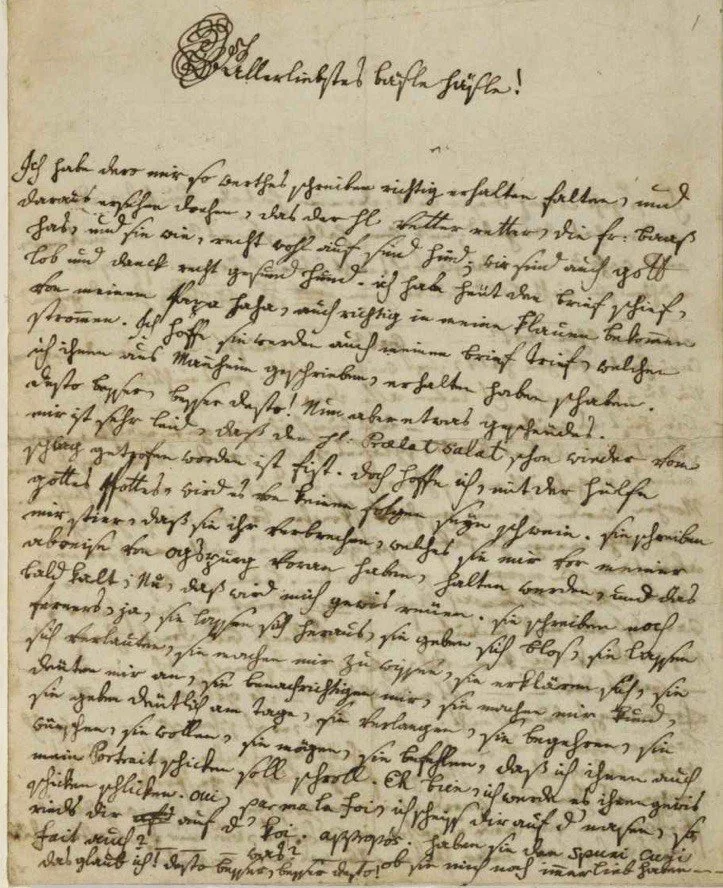 Allerliebstes bäsle häsle!
1
Ich habe dero mir so werthes schreiben richtig erhalten falten, und
daraus ersehen drehen, das der H: vetter retter, die fr: baaß
has, und sie wie, recht wohl auf sind hind; wir sind auch gott
lob und danck recht gesund hund. ich habe heüt den brief schief,
von meinem Papa haha, auch richtig in meine klauen bekommen
strommen. Ich hoffe sie werden auch meinen brief trief, welchen
ich ihnen aus Mannheim geschrieben, erhalten haben schaben.
desto besser, besser desto! Nun aber etwas gescheüdes.
mir ist sehr leid, daß der H: Prælat Salat schon wieder vom
schlag getrofen worden ist fist. doch hoffe ich, mit der hülfe
gottes spottes, wird es von keinen folgen seyn schwein. sie schreiben
mir stier, daß sie ihr verbrechen, welches sie mir vor meiner
abreise von ogspurg voran haben, halten werden, und das
bald kalt; Nu, daß wird mich gewis reüen. sie schreiben noch
ferners, ja, sie lassen sich heraus, sie geben sich blos, sie lassen
sich verlauten, sie machen mir zu wissen, sie erklären sich, sie
deüten mir an, sie benachrichtigen mir, sie machen mir kund,
sie geben deütlich am tage, sie verlangen, sie begehren, sie
wünschen, sie wollen, sie mögen, sie befehlen, daß ich ihnen auch
mein Portrait schicken soll schroll. Eh bien, ich werde es ihnen gewis
schicken schlicken. oui, par ma la foi, ich scheiss dir auf d' nasen, so
rinds dir auf d' koi. appropós. haben sie den spuni cuni
fait auch? — — was? — — ob sie mich noch immer lieb haben — —
das glaub ich! desto besser, besser desto!